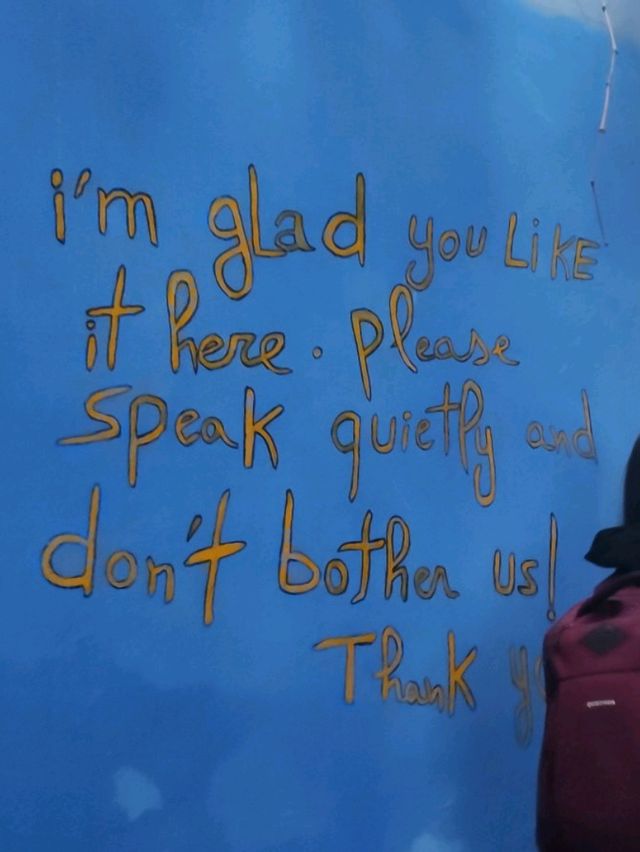 i'm glad you LiKE
it here. please
speak quietly and
don't bother us!
Thank